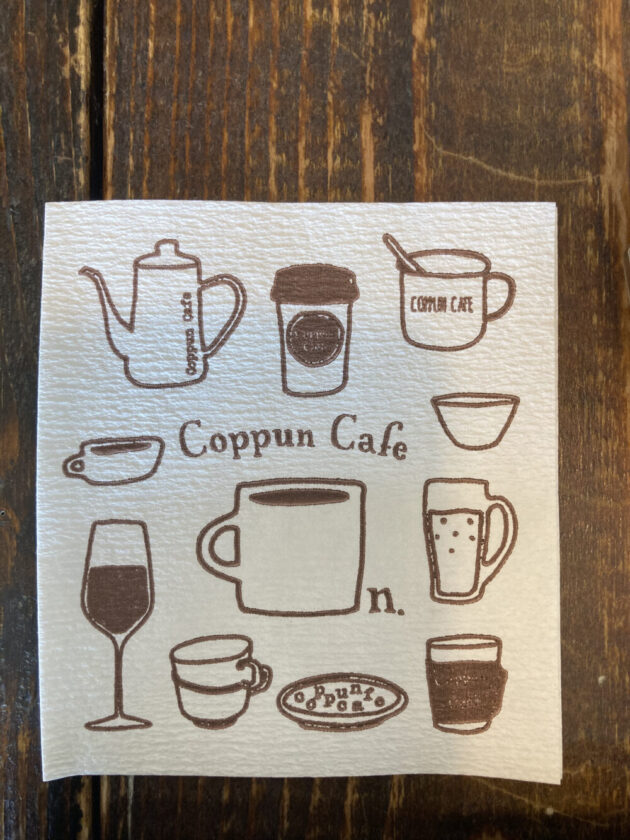 Coppun Cafe
COPPUN CAFE
Coppun Cafe
n.